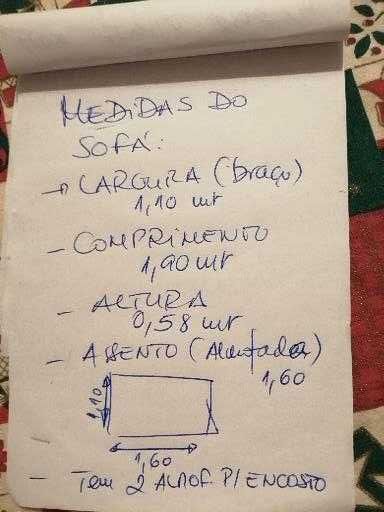 MEDIDAS DO
SOFÁ:
→ LARGURA (braço)
1,10 mt
- COMPRIMENTO
1,90 mt
- ALTURA
0,58 mt
- ASSENTO (Almofada)
1,60
1,10
1,60
- Tem 2 ALMOF. P/ ENCOSTO